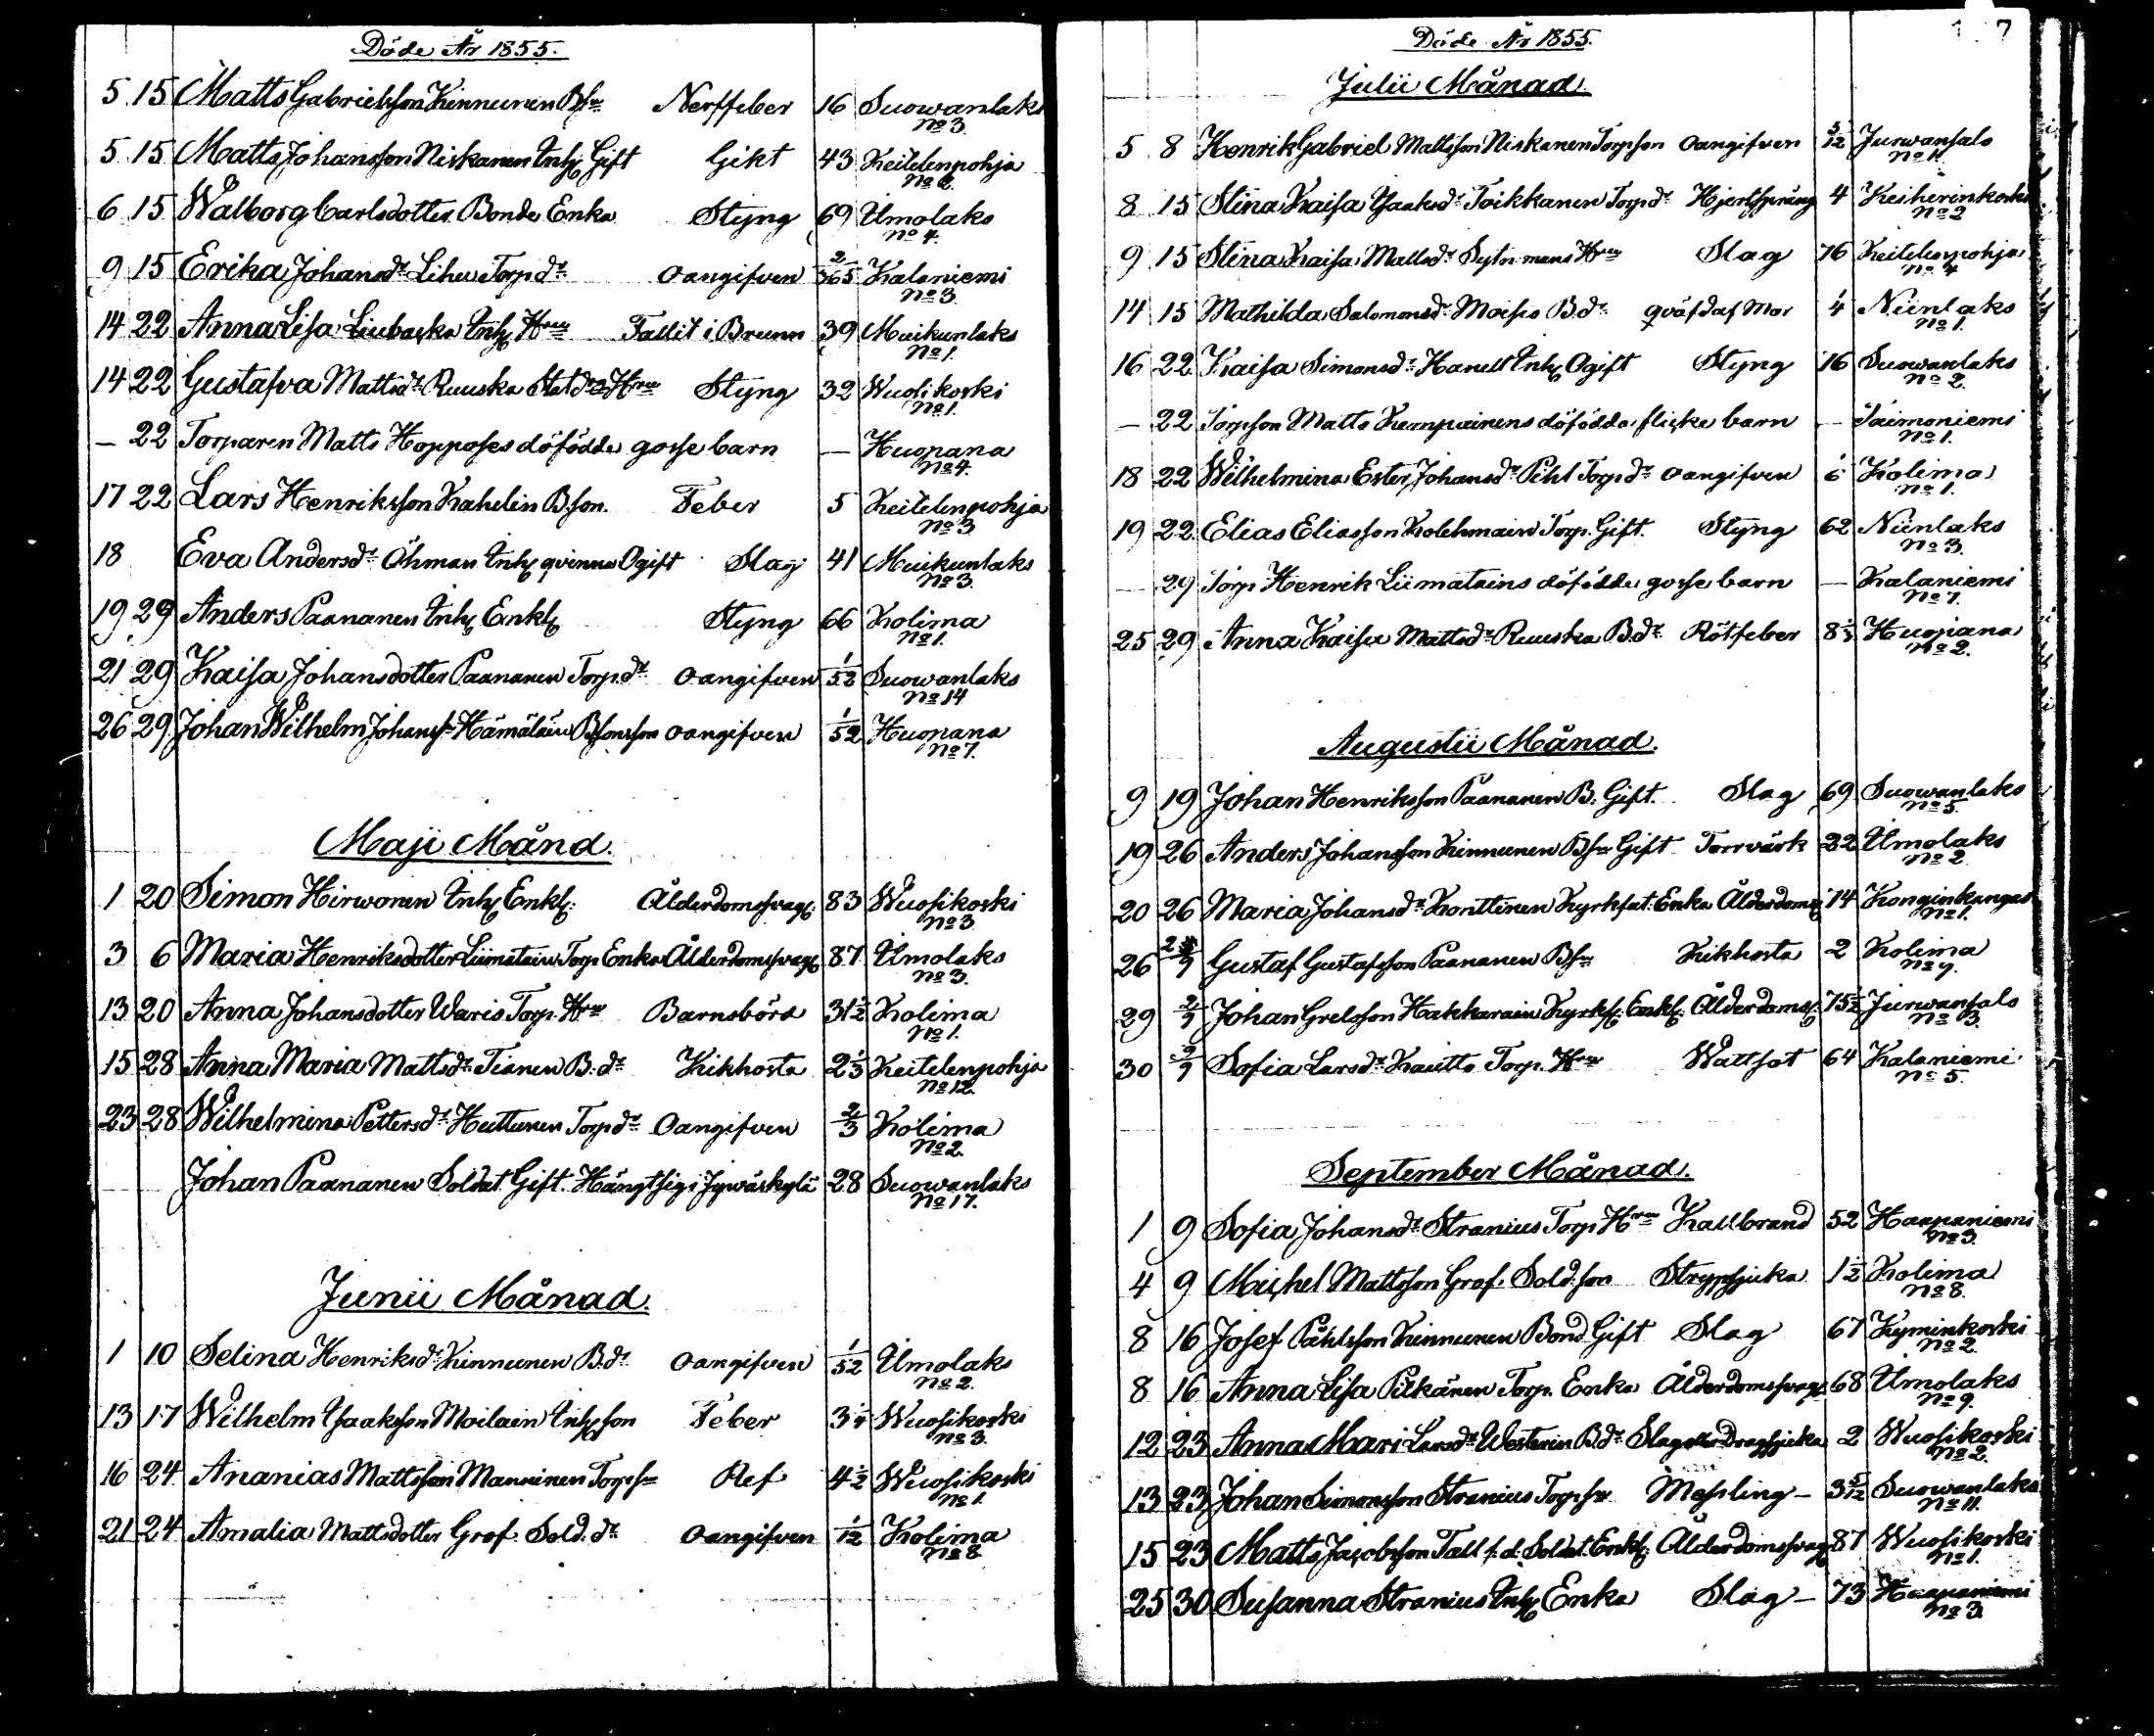 Döde År 1855.
5 15 Matts Gabrielsson Kinnunen Bsn Nerffeber 16 Suowanlaks
No 3.
5 15 Matts Johansson Niskanen Inh. Gift Gikt 43 Keitelenpohja
No 2.
6 15 Walborg Carlsdotter Bonde Enka Styng 69 Ilmolaks
No 4.
9 15 Erika Johansdr Lihu Torp.dr oangifven 2/365 Kalaniemi
No 3
14 22 Anna Lisa Liubaska Inh. Hru Fallit i Brunn 39 Muikunlaks
No 1.
14 22 Gustafva Mattsdr Ruuska Hru Styng 32 Wuosikoski
No 1.
— 22 Torparen Matts Hopposes döfödda gosse barn — Huopana
No 4.
17 22 Lars Henriksson Kahelin B.son. Feber 5 Keitelenpohja
No 3
18 Eva Andersdr Öhman Inh. qvinna Ogift Slag 41 Muikunlaks
No 3.
19 29 Anders Paananen Inh. Enkl. Styng 66 Kolima
No 1.
21 29 Kaisa Johansdotter Paananen Torp.dr oangifven 1/52 Suowanlaks
No 14
26 29 Johan Wilhelm Johanss. Hämäläin Bsonson oangifven 1/52 Huopana
No 7.
Maji Månd.
1 20 Simon Hirwonen Inh. Enkl. Ålderdomssvagh. 83 Wuosikoski
No 3
3 6 Maria Henriksdotter Liimatain Torp. Enka Ålderdomssvagh 87 Ilmolaks
No 3.
13 20 Anna Johansdotter Waris Torp. Hru Barnsbörd 31 1/2 Kolima
No 1.
15 28 Anna Maria Mattsdr Tianen B.dr Kikhosta 2 1/3 Keitelenpohja
No 12.
23 28 Wilhelmina Pettersdr Huttunen Torpdr Oangifven 2/3 Kolima
No 2.
Johan Paananen Soldat Gift. Hängt sig i Jywäskylä 28 Suowanlaks
No 17.
Junii Månad.
1 10 Selina Henriksdr Kinnunen B.dr oangifven 1/52 Ilmolaks
No 2.
13 17 Wilhelm Isaaksson Moilain Inh.son Feber 3 1/4 Wuosikoski
No 3.
16 24 Ananias Mattsson Manninen Torpsn Ref 4 1/2 Wuosikoski
No 1.
21 24 Amalia Mattsdotter Graf Sold.dr oangifven 1/12 Kolima
No 8.
Döde År 1855.
Julii Månad.
5 8 Henrik Gabriel Mattsson Niskanen Torpson oangifven 5/12 Jurwansalo
No 1.
8 15 Stina Kaisa Isaaksdr Toikkanen Torpdr Hjertsprång 4 Keiherinkoski
No 2
9 15 Stina Kaisa Mattsdr Hru Slag 76 Keitelenpohja
No 4
14 15 Mathilda Salomonsdr Moisio B.dr qväfdaf Mor 1/4 Niinlaks
No 1.
16 22 Kaisa Simonsdr Hanell Inh. Ogift Styng 16 Suowanlaks
No 2.
— 22 Torpson Matts Kempainens döfödda flicke barn — Saimoniemi
No 1.
18 22 Wilhelmina Ester Johansdr Pihl Torpdr oangifven Kolima
No 1.
19 22 Elias Eliasson Kolehmain Torp. Gift. Styng 62 Niinlaks
No 3.
— 29 Torp. Henrik Liimatains döfödda gosse barn — Kalaniemi
No 7.
25 29 Anna Kaisa Mattsdr Ruuska B.dr Rötfeber 8 Huopana
No 2.
Augustii Månad.
9 19 Johan Henriksson Paananen B. Gift. Slag 69 Suowanlaks
No 5.
19 26 Anders Johansson Kinnunen Bsn Gift Torrvärk 22 Ilmolaks
No 2
20 26 Maria Johansdr Konttinen Kyrkfat. Enka Ålderdoms 74 Konginkangas
No 1.
26 2/9 Gustaf Gustafsson Paananen Bsn Kikhosta 2 Kolima
No 9.
29 2/9 Johan Grelsson Hakkarain Enkl. Ålderdoms. 75 1/2 Jurwansalo
No 3.
30 2/9 Sofia Larsdr Kautto Torp. Hru Wattsot 64 Kalaniemi
No 5.
September Månad.
1 9 Sofia Johansdr Stranius Torp. Hru Kallbrand 52 Haapaniemi
No 3.
4 9 Michel Mattsson Graf Sold.son Strypsjuka 1 1/2 Kolima
No 8.
8 16 Josef Påhlsson Kinnunen Bond. Gift Slag 67 Kyminkoski
No 2.
8 16 Anna Lisa Pilkänen Torp. Enka Ålderdomssvagh. 68 Ilmolaks
No 9.
12 23 Anna Mari Larsdr Westerin B.dr Slag eller Dragsjuka 2 Wuosikoski
No 2.
13 23 Johan Simonsson Stranius Torpsn Messling — 3 5/12 Suowanlaks
No 11.
15 23 Matts Jacobsson Tall f.d. Soldat. Enkl. Ålderdomssvagh 87 Wuosikoski
No 1.
25 30 Susanna Stranius Inh. Enka Slag — 73 Haapaniemi
No 3.